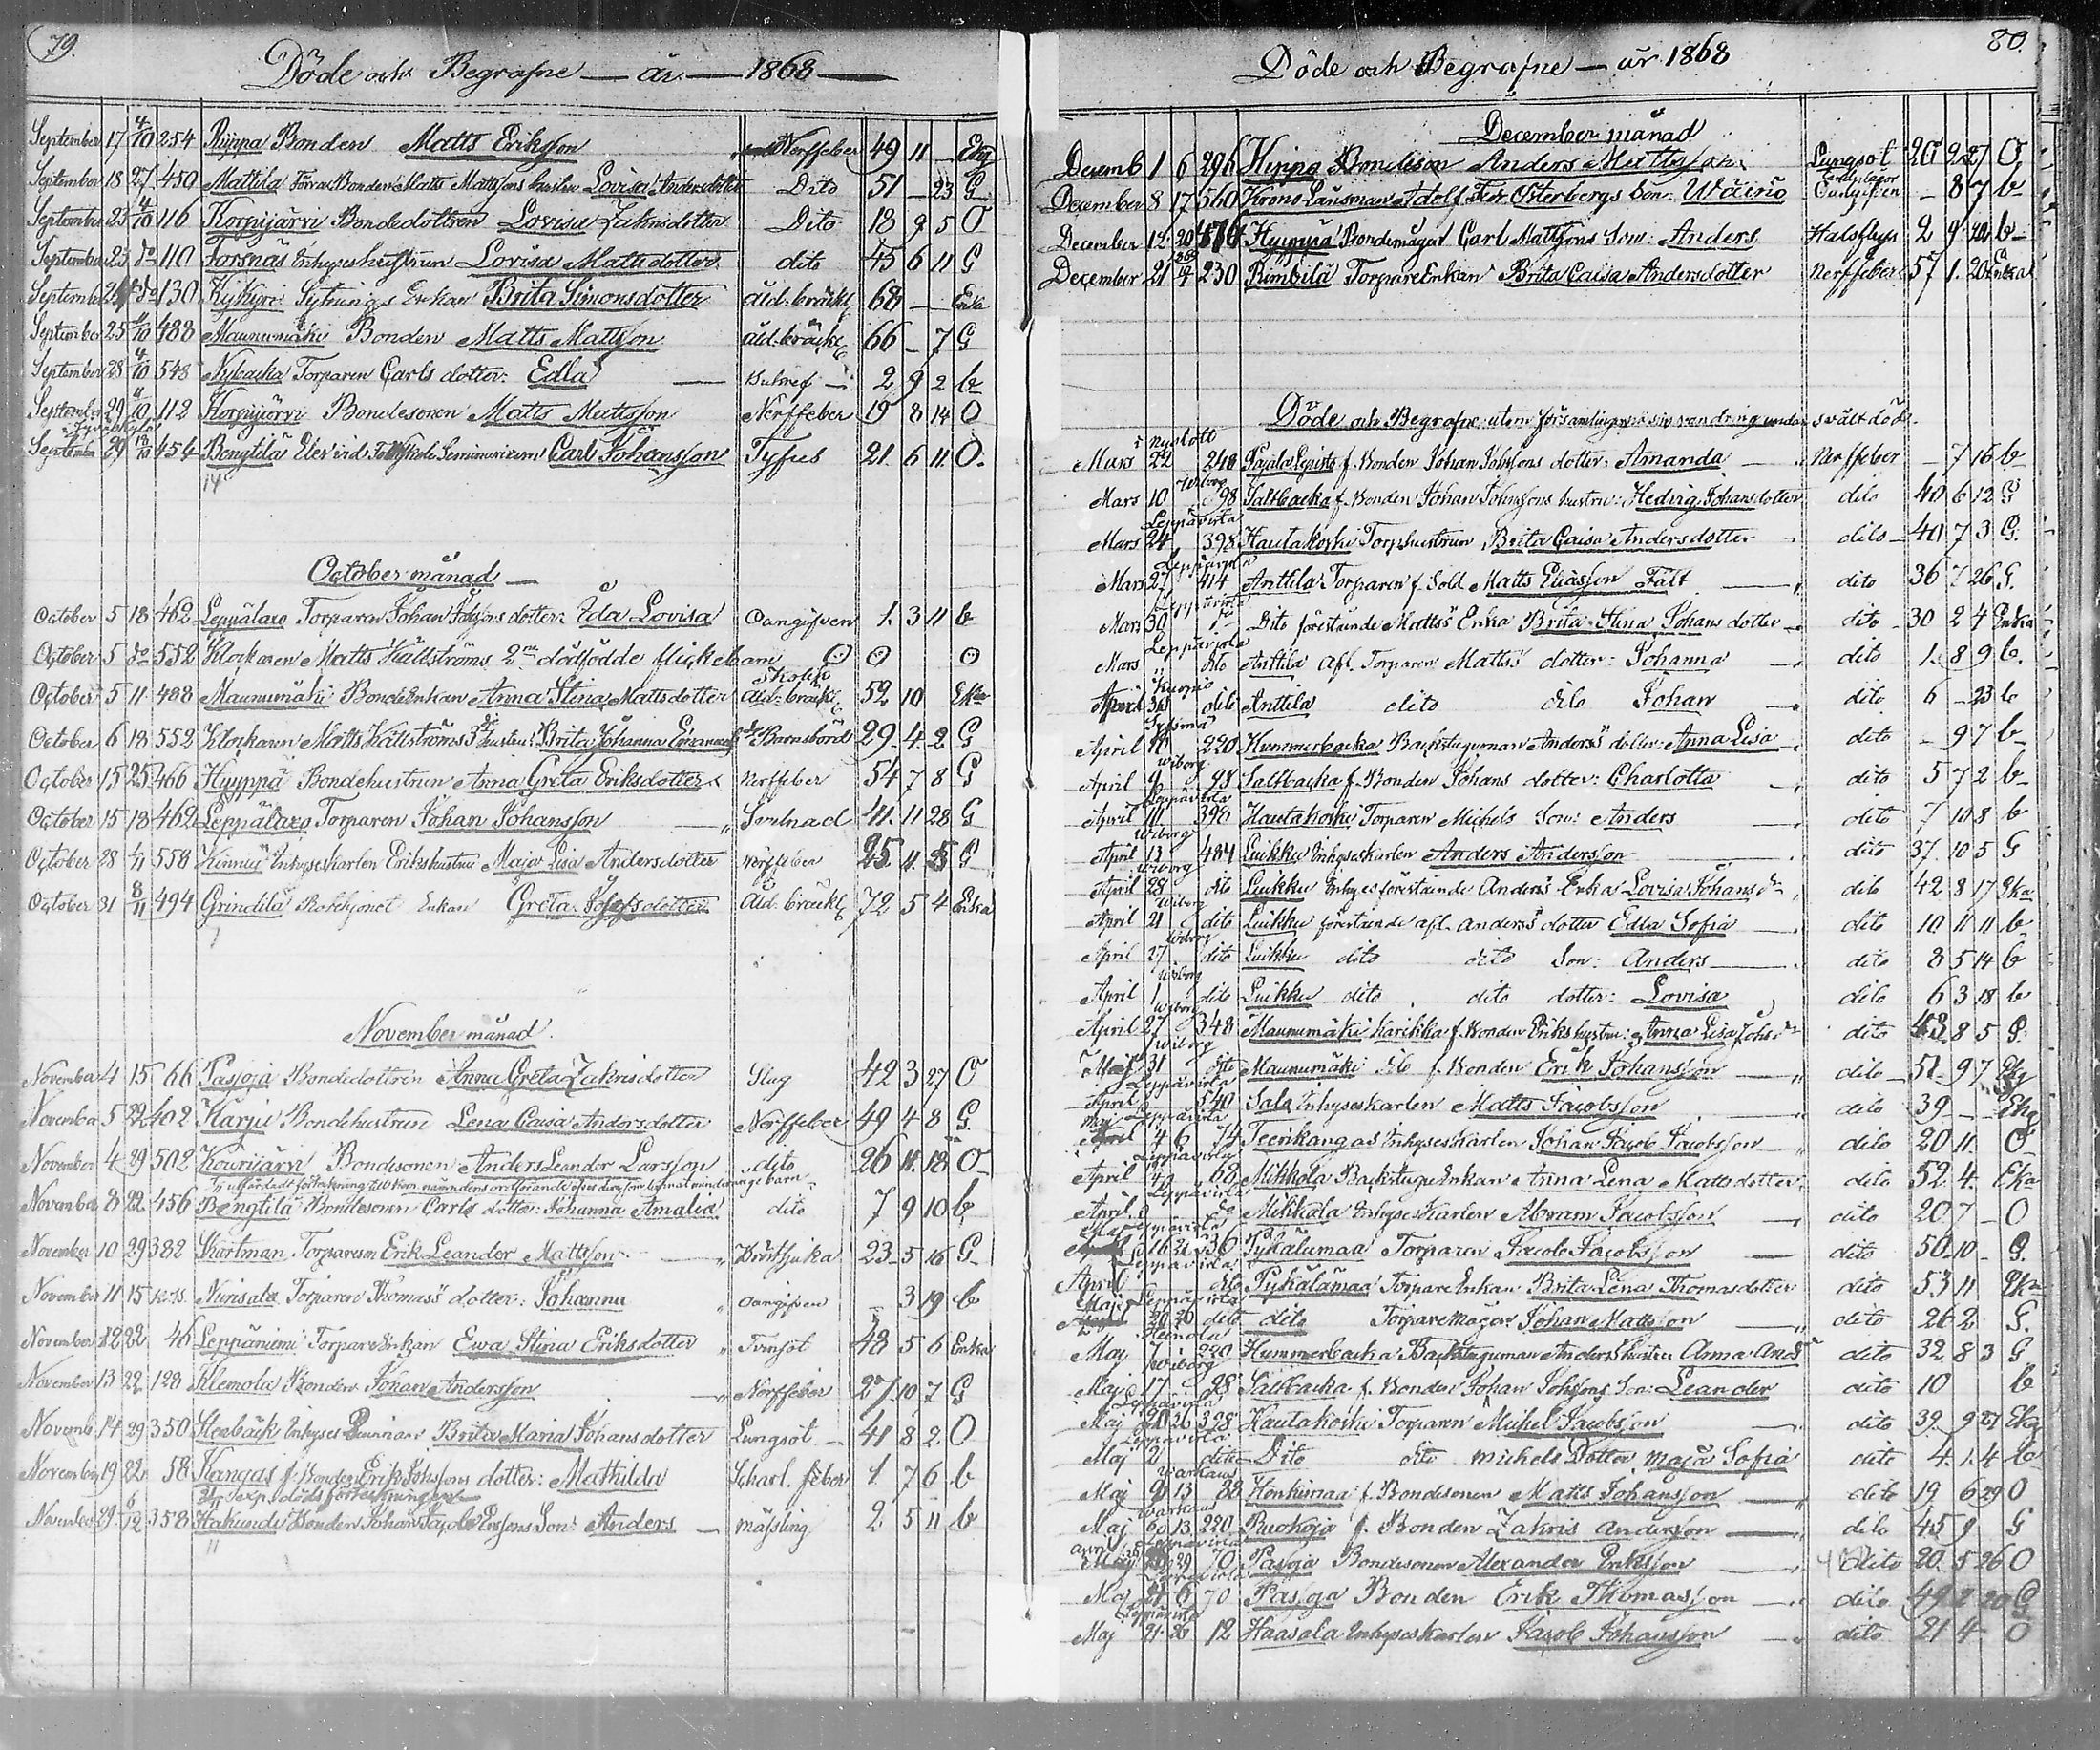 79.
Döde och Begrafne — år — 1868 —
September 17 4/10 254 Hyppä Bonden Matts Eriksson Nerffeber 49 11 — Ekg
September 18 27 450 Mattila Förra Bonden Matts Mattsons hustru Lovisa Andersdotter Dito 51 — 23 G
September 23 4/10 116 Korpijärvi Bondedottren Lovisa Zakrisdotter Dito 18 9 5 O
September 23 do 110 Forsnäs Inhyseshustrun Lovisa Mattsdotter dito 45 6 11 G
September 24 do 130 Kykyri Sytnings Enkan Brita Simonsdotter åld. bräckl 68 — Enka
September 25 4/10 488 Maunumäki Bonden Matts Mattsson åld. bräckl 66 — 7 G
September 28 4/10 548 Nybacka Torparen Carls dotter: Edla — 2 9 2 b
September 29 4/10 112 Korpijärvi Bondesonen Matts Mattsson Nerffeber 19 8 14 O
September 29 18/10 454 Bengtilä Elev vid Folkskole Seminarium Carl Johansson Tyfus 21 6 11 O.
October månad —
October 5 18 462 Leppälaxo Torparen Johan Johssons dotter: Ida Lovisa Oangifven 1. 3 11 b
October 5 do 552 Klockaren Matts Källströms 2ne dödfödde flickebarn O O O
October 5 11 488 Maunumäki BondeEnkan Anna Stina Mattsdotter åld. bräckl 52 10 Eka
October 6 18 552 Klockaren Matts Källströms 3de hustru: Brita Johanna Emanuels dr Barnsbörd 29. 4. 2 G
October 15 25 466 Hyyppä Bondehustrun Anna Greta Eriksdotter Nerffeber 54 7 8 G
October 15 18 462 Leppälaxo Torparen Johan Johansson — " 41. 11 28 G
October 28 1/11 558 Kinnui Inhyseskarlen Eriks hustru Maja Lisa Andersdotter Nerffeber 25. 11. 25 G
October 31 8/11 494 Grindilä Enkan Greta Josefsdotter Åld. bräckl 72 5 4 Enka
November månad.
November 4 15 66 Pasoja Bondedottren Anna Greta Zakrisdotter Slag 42 3 27 O
November 5 22 402 Karju Bondehustrun Lena Caisa Andersdotter Nerffeber 49 4 8 G
November 4 29 502 Kourijärvi Bondesonen Anders Leander Larsson dito 26 11. 18 O
November 8 22 456 Bengtilä Bondesonen Carls dotter: Johanna Amalia dito 7 9 10 b
November 10 29 382 Skartman Torparesm Erik Leander Mattsson Bröstsjuka 23 5 16 G
November 11 15 Nurisala Torparen Thomas's dotter: Johanna Oangifven — 3 19 b
November 12 22 46 Leppäniemi TorpareEnkan Ewa Stina Eriksdotter Tvinsot 48 5 6 Enka
November 13 22 128 Klemola Bonden Johan Andersson Nerffeber 27. 10 7 G
Novemb 14 29 350 Stenbäck Inhyses Brita Maria Johansdotter Lungsot — 41 8 2 O
November 19 22 58 Kangas f. Bonden Erik Johssons dotter: Mathilda Scharl. feber 1 7 6 b
November 29 6/12 358 Hakunde Bonden Johan Jacob Erssons Son: Anders — mässling 2 5 11 b
80.
Döde och Begrafne — år 1868
December månad
Decemb 1 6 296 Hippo Bondeson Anders Mattsson Lungsot 20 2 27 O
December 8 17 560 Krono Länsman Adolf Österbergs Son: Wäinö Oangifven — 8 7 b
December 12 20 Hyyppä Bondemågen Carl Mattsons Son: Anders Halsfluss 2 9 b
December 21 230 Rimbilä TorpareEnkan Brita Caisa Andersdotter Nerffeber 57 1. 20 Enka
Döde och Begrafne utom församlingen på sin vandring undan svältdöd.
Nyslott
Mars 22 248 f. Bonden Johan Johssons dotter: Amanda — Nerffeber — 7 16 b
Wiborg
Mars 10 98 Saltbacka f. Bonden Johan Johnssons hustru: Hedvig Johansdotter dito 40 6 12 G
Leppävirta
Mars 24 398 Hautakoski Torphustrun Brita Caisa Andersdotter dito 40 7 3 G.
Leppävirta
Mars 27 414 Anttila Torparen f. Sold Matts Eliasson Fält dito 36 7 26 G.
Leppävirta
Mars 30 do Dito förestående Matts's Enka Brita Stina Johansdotter dito 30 2 4 Enka
Leppävirta
Mars dito Anttila afl. Torparen Matts's dotter: Johanna dito 1. 8 9 b.
Kuopio
April dito Anttila dito dito Johan dito 6 — 23 b
April 220 Hummerbacka Backstuguman Anders's dotter: Anna Lisa dito — 9 7 b
Wiborg
April 9 98 Saltbacka f. Bonden Johans dotter: Charlotta dito 5 7 2 b
Leppävirta
April 398 Hautakoski Torparen Michels Son: Anders dito 7 10 8 b
Wiborg
April 13 484 Luikku Inhyseskarlen Anders Andersson dito 37. 10 5 G
Wiborg
April 28 dito Luikku Inhyses förestående Anders's Enka Lovisa Johansdr dito 42 8 17 Eka
Wiborg
April 21 dito Luikku förestående afl. Anders's dotter Edla Sofia dito 10 11 11 b
Wiborg
April 27 dito Luikku dito dito Son: Anders dito 8 5 14 b
Wiborg
April 1 dito Luikku dito dito dotter: Lovisa dito 6 3 18 b
Wiborg
April 27 348 Maunumäki Karikka f. Bonden Eriks hustru: Anna Lisa Johsdr dito 43 8 5 G.
Wiborg
31 dito Maunumäki dito f. Bonden Erik Johansson dito 51. 9 7 Ekg
Leppävirta
April 540 Sala Inhyseskarlen Matts Jacobsson dito 39 — — Ekg
Leppävirta
4 6 74 Teerikangas Inhyseskarlen Johan Jacob Jacobsson dito 20 11. O
Leppävirta
April 4 68 Mikkola BackstuguEnkan Anna Lena Mattsdotter dito 52 4. Eka
Leppävirta
April do Mikkala Inhyseskarlen Abram Jacobsson dito 20 7 — O
Leppävirta
Pykälämaa Torparen Jacob Jacobsson dito 50 10 — G
Leppävirta
April dito Pykälämaa TorpareEnkan Brita Lena Thomasdotter dito 53 11 Eka
Maj Leppävirta
20 26 dito dito Torparemågen Johan Mattsson dito 26 2 G.
Heinola
Maj 7 220 Hummerbacka Backstuguman Anders's hustru Anna Andsdr dito 32 8 3 G
Wiborg
Maj 17 98 Saltbacka f. Bonden Johan Johssons Son: Leander dito 10 b
Leppävirta
Maj 20 26 398 Hautakoski Torparen Mickel Jacobsson dito 39. 9 27 Ekg
Leppävirta
Maj 2 dito Dito dito Michels Dotter Maja Sofia dito 4. 1. 4 b
Warkaus
Maj 9 13 88 Honkimaa f. Bondesonen Matts Johansson dito 19 6 29 O
Warkaus
Maj 13 220 Ruokoja f. Bonden Zakris Andersson dito 45 9 G
Leppävirta
29 70 Pasoja Bondesonen Alexander Eriksson dito 20. 5 26 O
Leppävirta
Maj 6 70 Pasoja Bonden Erik Thomasson dito 49 2 20 G
Leppävirta
Maj 21. 26 12 Haasala Inhyseskarlen Jacob Johansson dito 21 4 O